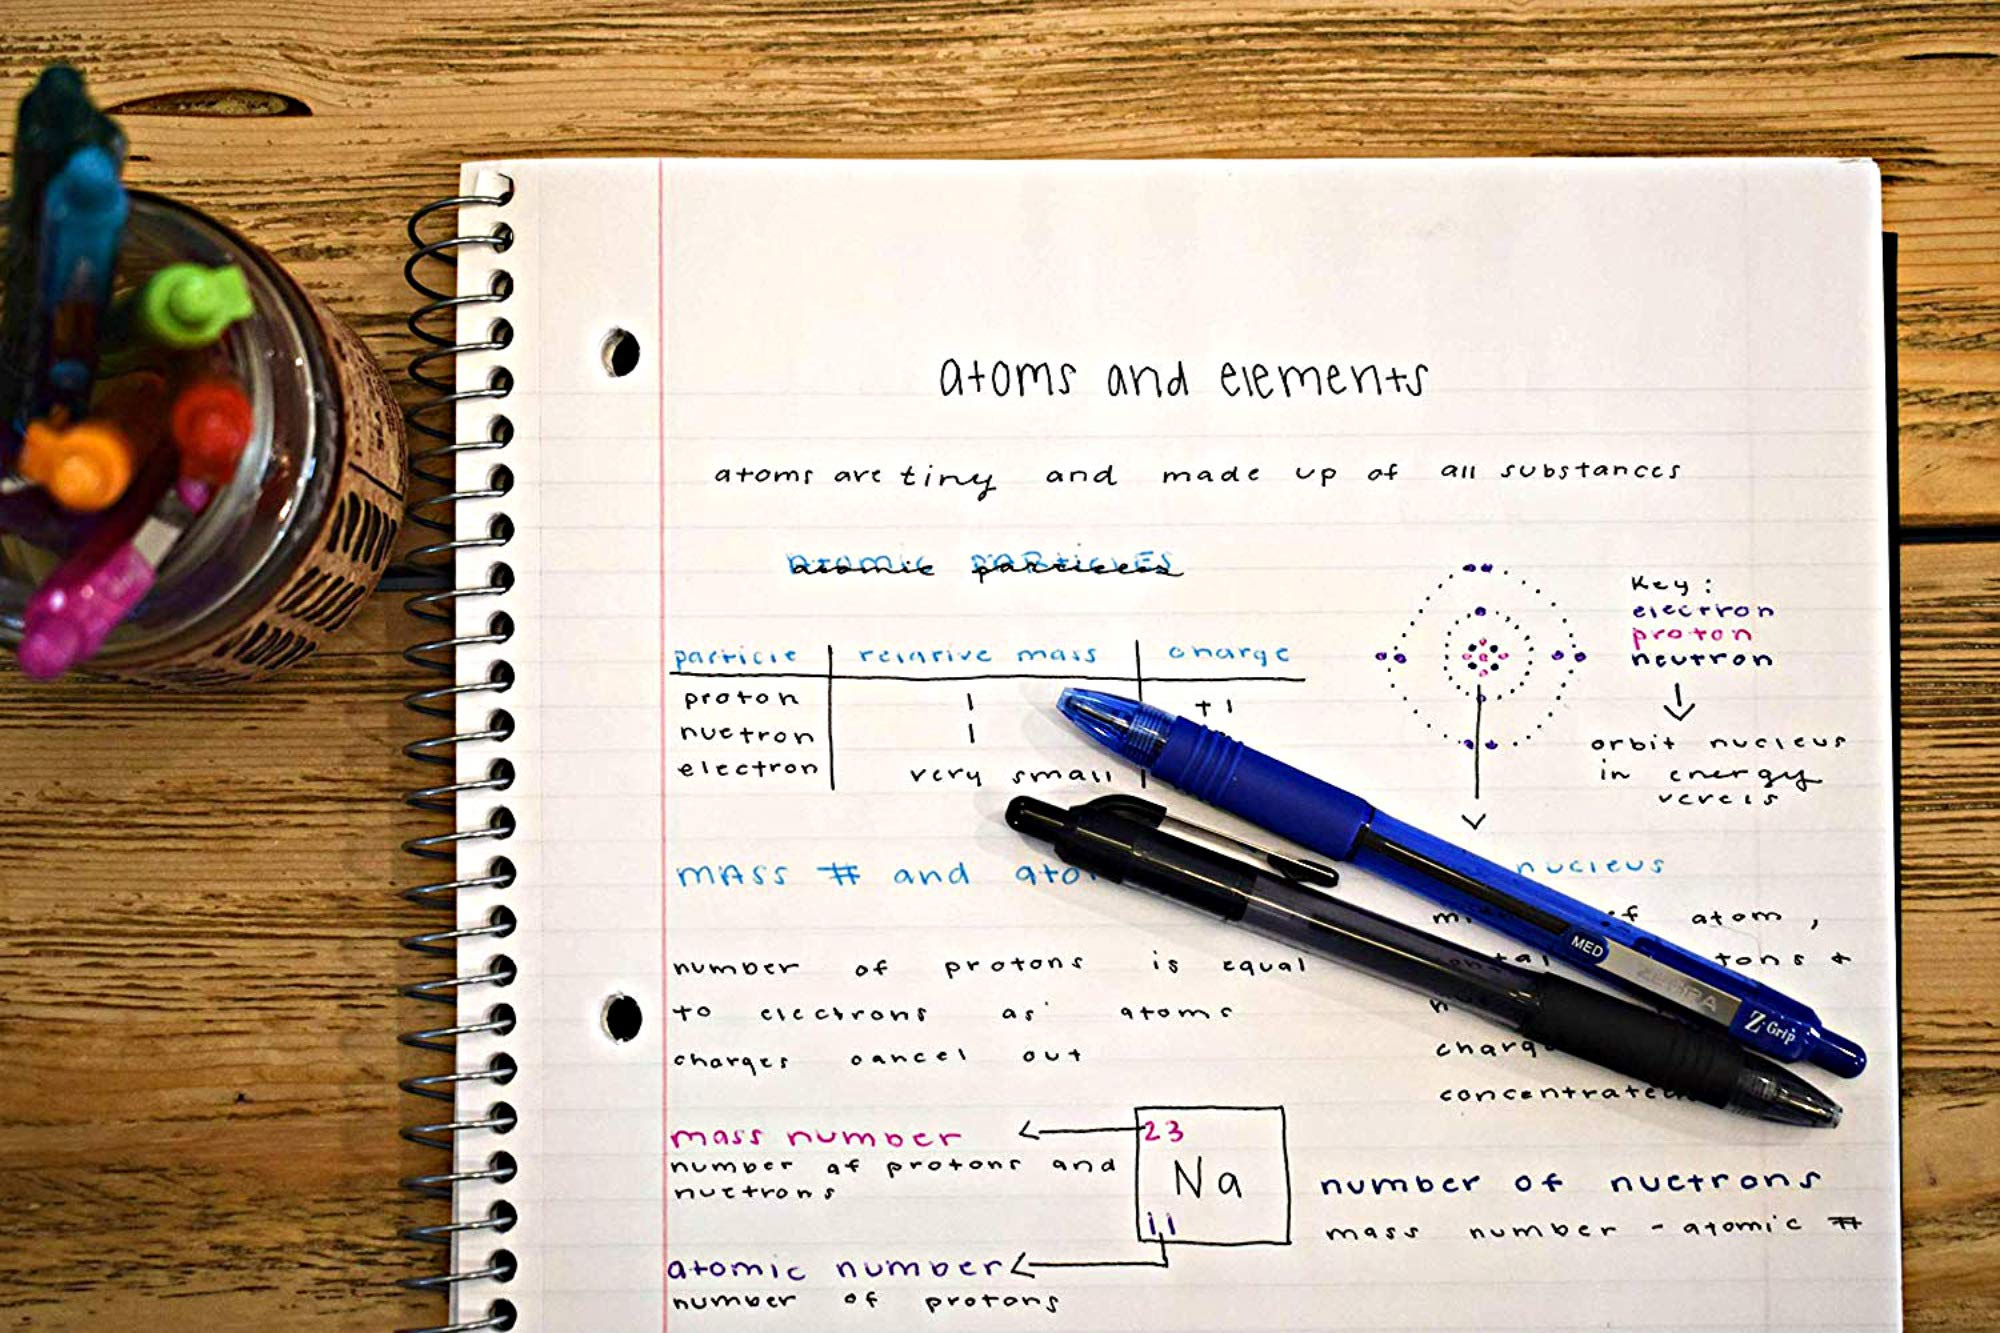 atoms and elements
atoms are tiny and made up of all substances
atomic particles
particle relative mass charge
proton 1 +1
nuetron 1
electron very small
Key:
electron
proton
neutron
orbit nucleus
in energy
mass # and
nucleus
of atom,
number of protons is equal
to electrons as atoms
charges cancel out
mass number
number of protons and
nuetrons
23
Na
11
number of nuetrons
mass number - atomic #
atomic number
number of protons
MED
ZEBRA
Z-Grip